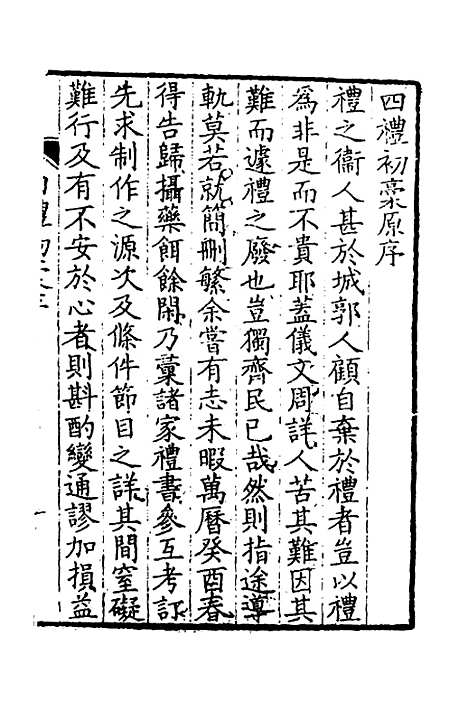 四禮初稾原序
禮之衞人甚於城郭人顧自棄於禮者豈以禮
爲非是而不貴耶蓋儀文周詳人苦其難因其
難而遽禮之廢也豈獨齊民已哉然則指途導
軌莫若就簡刪繁余嘗有志未暇萬曆癸酉春
得告歸攝藥餌餘閑乃彙諸家禮書參互考訂
先求制作之源次及條件節目之詳其間窒礙
難行及有不安於心者則斟酌變通謬加損益